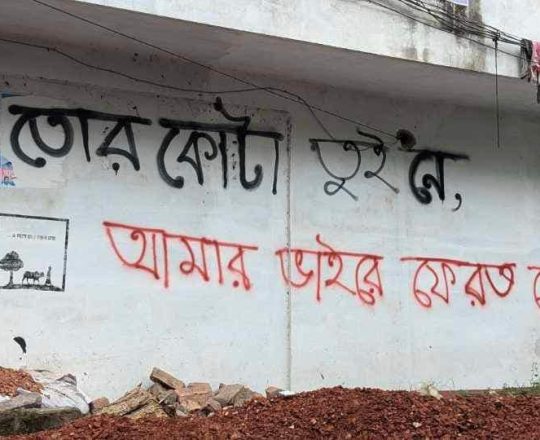 তোর কোটা তুই নে,
আমার ভাইরে ফেরত